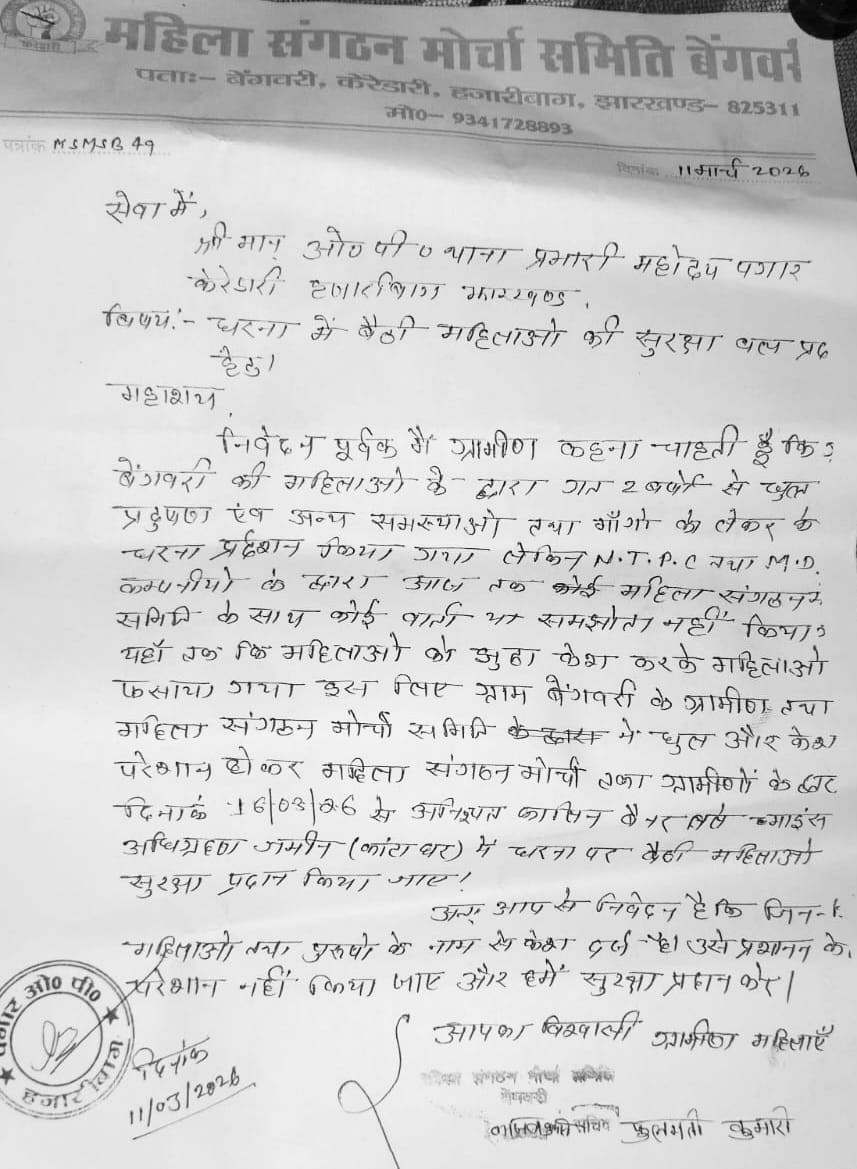 महिला संगठन मोर्चा समिति बेंगवरी
पताः- बेंगवरी, केरेडारी, हजारीबाग, झारखण्ड- 825311
मो०- 9341728893
पत्रांक MSMSB 49
दिनांक 11मार्च 2026
सेवा में,
श्री मान् ओ० पी ० थाना प्रभारी महोदय पगार
केरेडारी हजारीबाग झारखण्ड,
विषय:- धरना में बैठी महिलाओ की सुरक्षा वल प्रद
हेतु।
महाशय,
निवेदन पूर्वक मैं ग्रामीण कहना चाहती हूँ कि
बेंगवरी की महिलाओ के द्वारा गत 2 वर्षो से धुल
प्रदुषण एंव अन्य समस्याओ तथा माँगो को लेकर के
धरना प्रर्दशन किया गया लेकिन N.T.P.C तथा M.D.
कम्पनीयो के द्वारा आज तक कोई महिला संगठन
समिति के साथ कोई वार्ता या समझोता नहीं किया
यहाँ तक कि महिलाओ को झुठा केश करके महिलाओ
फसाया गया इस लिए ग्राम बेंगवरी के ग्रामीण तथा
महिला संगठन मोर्चा समिति ने धुल और केश
परेशान होकर महिला संगठन मोर्चा ग्रामीणों के द्वार
दिनाकं 16/03/26 से कालिन बैनर तले माइंस
अधिग्रहण जमीन (कांटा घर) में धरना पर बैठी महिलाओ
सुरक्षा प्रदान किया जाए!
अतः आप से निवेदन है कि जिन-
महिलाओ तथा पुरुषो के नाम से केश दर्ज है। उसे प्रशासन के
परेशान नहीं किया जाए और हमें सुरक्षा प्रदान करे।
आपका विश्वासी ग्रामीण महिलाएँ
पगार ओ० पी०
हजारीबाग
दिनांक
11/03/2026
संगठन मोर्चा समिति
बेंगवरी
सचिव फुलमती कुमारी